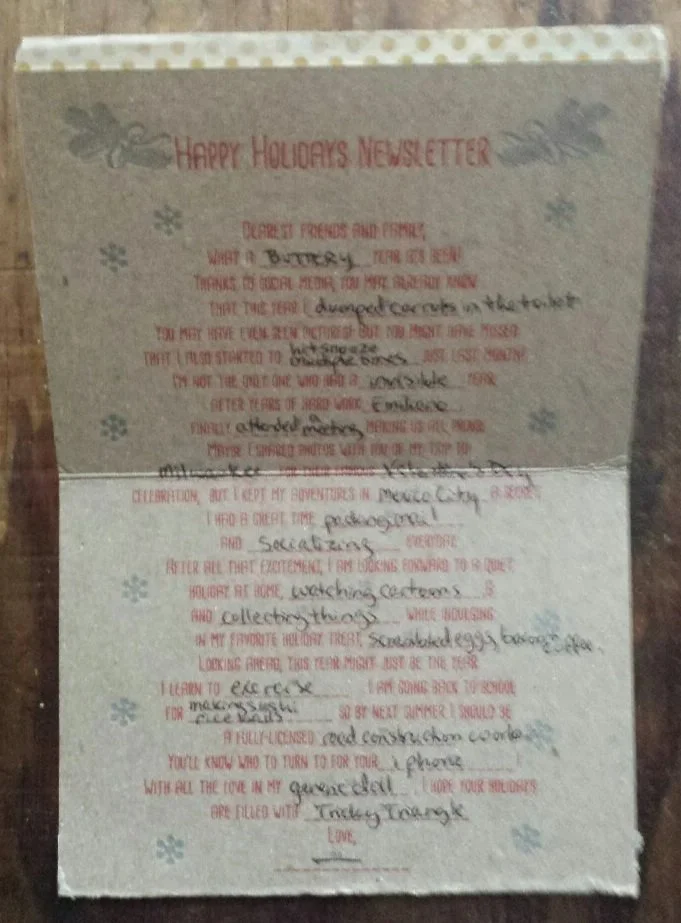 HAPPY HOLIDAYS NEWSLETTER
DEAREST FRIENDS AND FAMILY,
WHAT A BUTTERY YEAR IT'S BEEN!
THANKS TO SOCIAL MEDIA, YOU MAY ALREADY KNOW
THAT THIS YEAR I dumped carrots in the toilet
YOU MAY HAVE EVEN SEEN PICTURES! BUT YOU MIGHT HAVE MISSED
THAT I ALSO STARTED TO hit snooze multiple times JUST LAST MONTH!
I'M NOT THE ONLY ONE WHO HAD A invisible YEAR
AFTER YEARS OF HARD WORK, Emiliano
FINALLY attended a meeting, MAKING US ALL PROUD
MAYBE I SHARED PHOTOS WITH YOU OF MY TRIP TO
Milwaukee FOR THEIR FAMOUS Valentine's Day
CELEBRATION, BUT I KEPT MY ADVENTURES IN Mexico City A SECRET
I HAD A GREAT TIME packing
AND Socializing EVERYDAY
AFTER ALL THAT EXCITEMENT, I AM LOOKING FORWARD TO A QUIET
HOLIDAY AT HOME, watching cartoons
AND collecting things WHILE INDULGING
IN MY FAVORITE HOLIDAY TREAT, scrambled eggs, coffee.
LOOKING AHEAD, THIS YEAR MIGHT JUST BE THE YEAR
I LEARN TO exercise I AM GOING BACK TO SCHOOL
FOR making sushi rice balls SO BY NEXT SUMMER I SHOULD BE
A FULLY-LICENSED road construction worker
YOU'LL KNOW WHO TO TURN TO FOR YOUR iphone !
WITH ALL THE LOVE IN MY generic doll I HOPE YOUR HOLIDAYS
ARE FILLED WITH Tricky Triangle
LOVE,